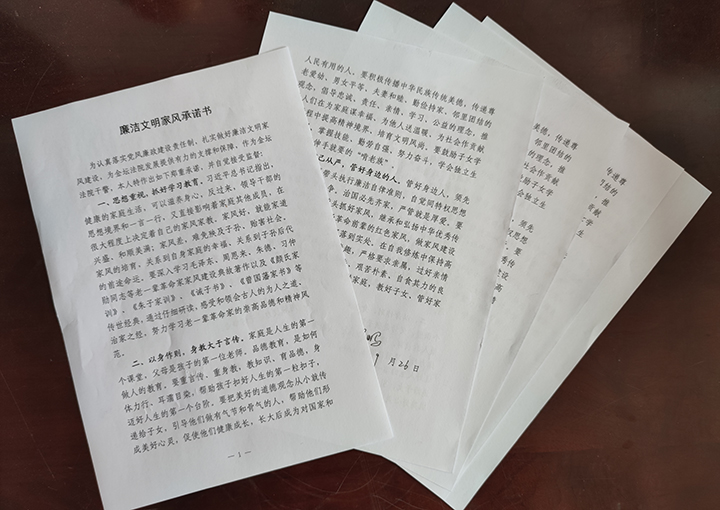 廉洁文明家风承诺书
为认真落实党风廉政建设责任制，扎实做好廉洁文明家
风建设，为金坛法院发展提供有力的支撑和保障，作为金坛
法院干警，本人特作出如下郑重承诺，并自觉接受监督：
一、思想重视，抓好学习教育。习近平总书记指出，
健康的家庭生活，可以滋养身心，反过来，领导干部的
思想境界和一言一行，又直接影响着家庭其他成员，在
很大程度上决定着自己的家风家教。家风好，就能家道
兴盛、和顺美满；家风差，难免殃及子孙、贻害社会。
家风的培育，关系到自身家庭的幸福，关系到子孙后代
的前途命运。要深入学习毛泽东、周恩来、朱德、习仲
勋同志等老一辈革命家家风建设典故著作以及《颜氏家
训》、《朱子家训》、《诫子书》、《曾国藩家书》等
传世经典，通过仔细研读，感受和领会古人的为人之道、
治家之经，努力学习老一辈革命家的崇高品德和精神风
范。
二、以身作则，身教大于言传。家庭是人生的第一
个课堂，父母是孩子的第一位老师。品德教育，是如何
做人的教育，要重言传、重身教，教知识、育品德，身
体力行、耳濡目染，帮助孩子扣好人生的第一粒扣子，
迈好人生的第一个台阶。要把美好的道德观念从小就传
递给子女，引导他们做有气节和骨气的人，帮助他们形
成美好心灵，促使他们健康成长，长大后成为对国家和
— 1 —
人民有用的人。要积极传播中华民族传统美德，传递尊
老爱幼、男女平等、夫妻和睦、勤俭持家、邻里团结的
观念，倡导忠诚、责任、亲情、学习、公益的理念，推
人们在为家庭谋幸福、为他人送温暖、为社会作贡献
程中提高精神境界、培育文明风尚。要鼓励子女学
掌握技能，勤劳自强、努力奋斗，学会独立生
伸手就要的“啃老族”
己从严，管好身边的人。管好身边人，须先
带头执行廉洁自律准则，自觉同特权思想
争。治国必先齐家，严管就是厚爱。要
头抓好家风，继承和弘扬中华优秀传
革命前辈的红色家风，做家风建设
落到实处，在自我修炼中保持高
趣，严格要求亲属，过好亲情
艰苦朴素、自食其力的良
家庭，教好子女、管好家
月26日